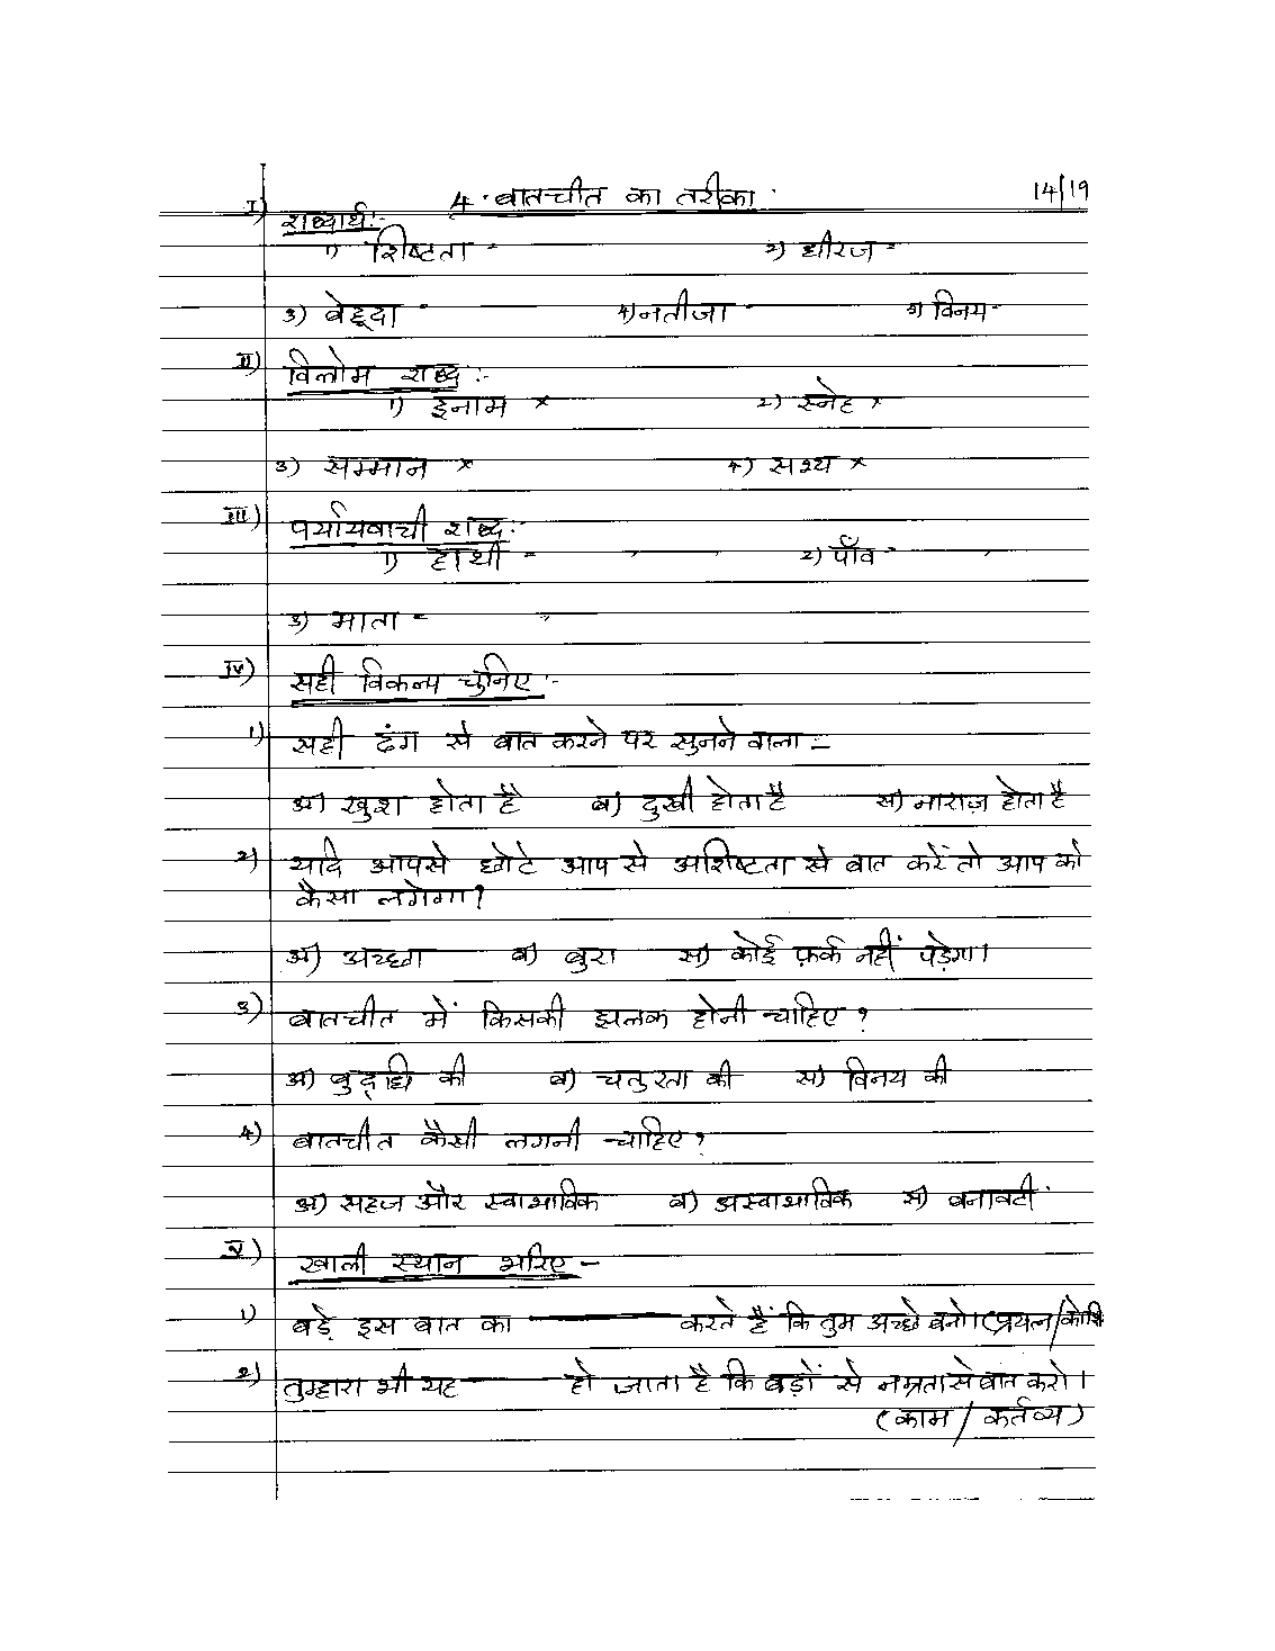 4. बातचीत का तरीका 14/19
I) शब्दार्थ:-
1) शिष्टता = 2) धीरज =
3) बेहूदा = 4) नतीजा = 5) विनय =
II) विलोम शब्द :-
1) इनाम × 2) स्नेह ×
3) सम्मान × 4) सभ्य ×
III) पर्यायवाची शब्द:-
1) हाथी = , , 2) पाँव = ,
3) माता = ,
IV) सही विकल्प चुनिए :-
1) सही ढंग से बात करने पर सुनने वाला -
अ) खुश होता है ब) दुखी होता है स) नाराज़ होता है
2) यदि आपसे छोटे आप से अशिष्टता से बात करें तो आप को
कैसा लगेगा?
अ) अच्छा ब) बुरा स) कोई फ़र्क नहीं पड़ेगा।
3) बातचीत में किसकी झलक होनी चाहिए ?
अ) बुद्धि की ब) चतुरता की स) विनय की
4) बातचीत कैसी लगनी चाहिए?
अ) सहज और स्वाभाविक ब) अस्वाभाविक स) बनावटी
V) खाली स्थान भरिए -
1) बड़े इस बात का ———— करते हैं कि तुम अच्छे बनो। (प्रयत्न/कोशि
2) तुम्हारा भी यह ———— हो जाता है कि बड़ों से नम्रता से बात करो।
(काम / कर्तव्य)